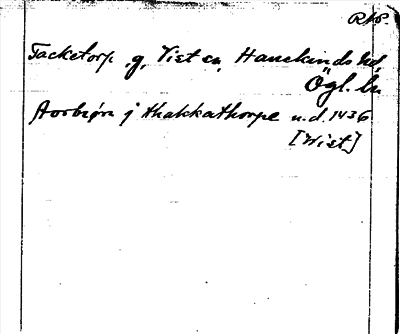 RAp.
Tacketorp, g, Vist sn, Hanekinds hd,
Ögl. ln
Aosbiørn j thakkathorpe u.d. 1436
[Wist]